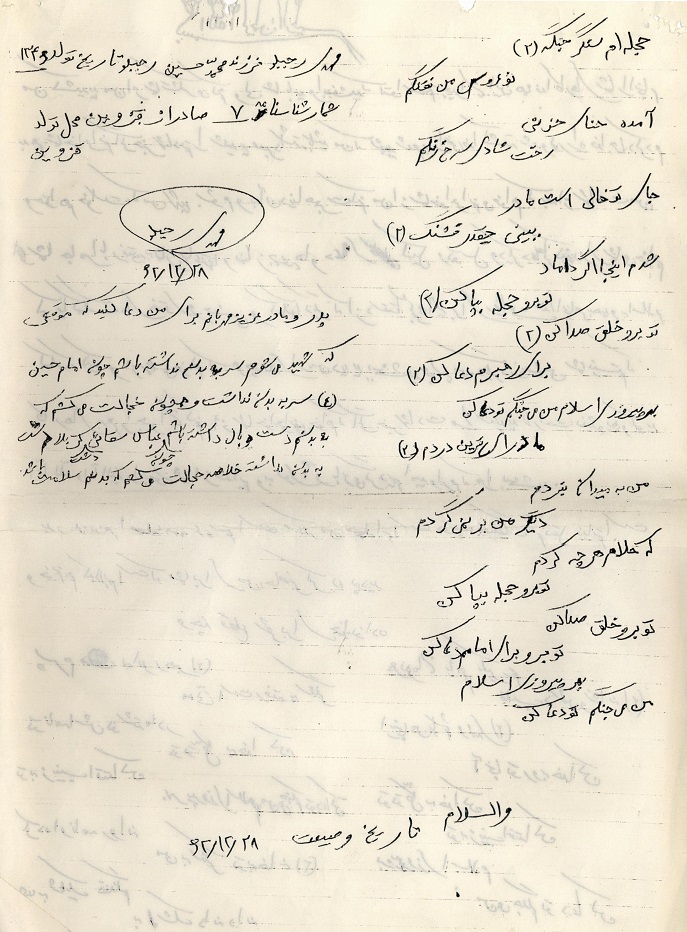 حجله ام سنگر جنگه (۲)
نوعروس من تفنگم
آمده حنای خونی
رخت شادی سرخ رنگم
جای تو خالی است مادر
ببینی چقدر قشنگ (۲)
شدم اینجا اگر داماد
تو برو حجله بپا کن (۲)
تو برو خلق صدا کن (۲)
برای رهبرم دعا کن (۲)
بهر پیروزی اسلام من می جنگم تو دعا کن
مادر ای ترین دردم (۲)
من به میدان نبردم
دیگر من بر نمی گردم
که حلالم هر چه کردم
تو برو حجله بپا کن
تو برو خلق صدا کن
تو برو برای امام دعا کن
بهر پیروزی اسلام
من می جنگم تو دعا کن
والسلام تاریخ وصیت ۶۲/۱۲/۲۸
مهدی رحیلو فرزند محمدحسین رحیلو تاریخ تولد ۱۳۴۶
شماره شناسنامه ۷ صادره از قزوین محل تولد
قزوین
مهدی رحیلو
۶۲/۱۲/۲۸
پدر و مادر عزیز مهربانم برای من دعا کنید که موقعی
که شهید می شوم سر به بدنم نداشته باشم چون امام حسین
(ع) سر به بدن نداشت و چون خجالت می کشم که
به بدنم دست و بال داشته باشم چون عباس سقای کربلا دست
به بدن نداشت خلاصه خجالت می کشم که بدنم سلامت باشد